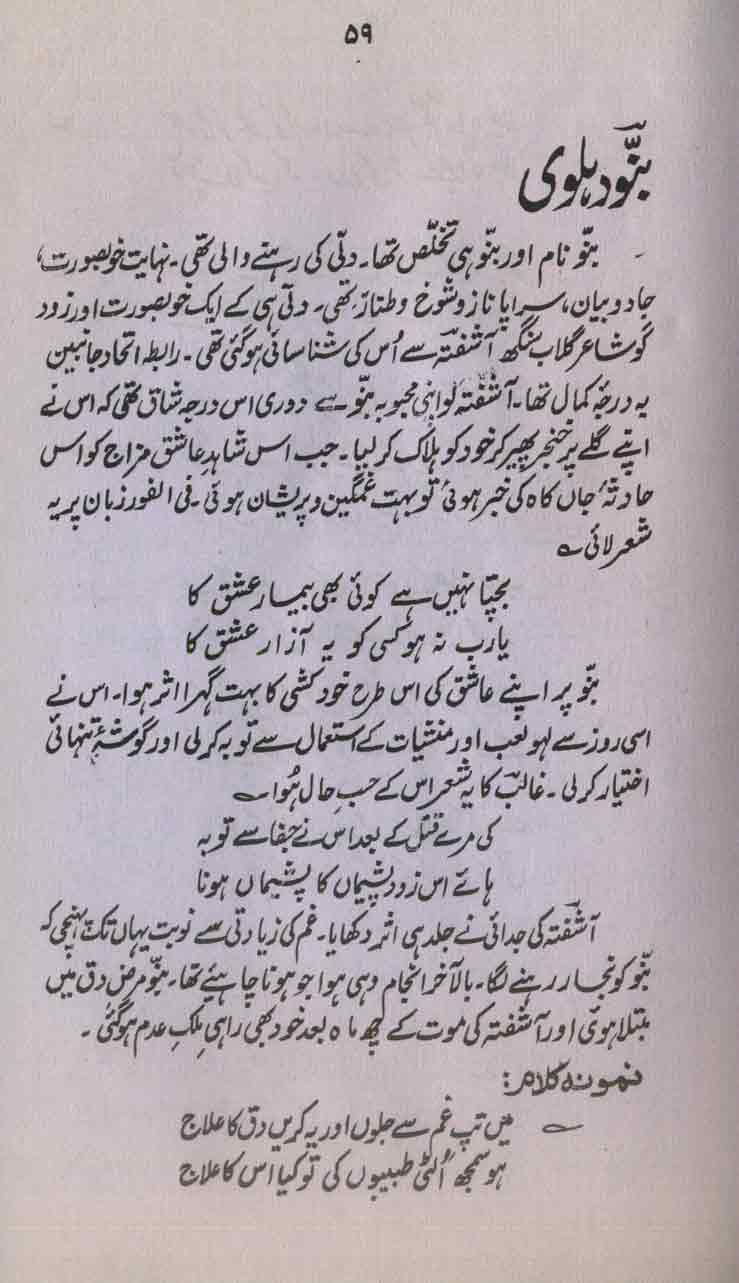 ۵۹
بنّو دہلوی
۔ بنّو نام اور بنّو ہی تخلّص تھا۔ دلّی کی رہنے والی تھی۔ نہایت خوبصورت،
جادو بیان، سراپا ناز و شوخ و طنّاز تھی۔ دلّی ہی کے ایک خوبصورت اور زود
گو شاعر گلاب سنگھ آشفتہؔ سے اُس کی شناسائی ہو گئی تھی۔ رابطۂ اتحاد جانبین
بہ درجۂ کمال تھا۔ آشفتہؔ کو اپنی محبوبہ بنّو سے دوری اس درجہ شاق تھی کہ اس نے
اپنے گلے پر خنجر پھیر کر خود کو ہلاک کر لیا۔ جب اس شاہدِ عاشق مزاج کو اس
حادثۂ جاں کاہ کی خبر ہوئی تو بہت غمگین و پریشان ہوئی۔ فی الفور زبان پر یہ
شعر لائی ؎
بچتا نہیں ہے کوئی بھی بیمار عشق کا
یارب نہ ہو کسی کو یہ آزار عشق کا
بنّو پر اپنے عاشق کی اس طرح خودکشی کا بہت گہرا اثر ہوا۔ اس نے
اسی روز سے لہو لعب اور منشیات کے استعمال سے توبہ کر لی اور گوشۂ تنہائی
اختیار کر لی۔ غالبؔ کا یہ شعر اس کے حسبِ حال ہُوا ؎
کی مرے قتل کے بعد اس نے جفا سے توبہ
ہائے اس زود پشیماں کا پشیماں ہونا
آشفتہؔ کی جدائی نے جلد ہی اثر دکھایا۔ غم کی زیادتی سے نوبت یہاں تک پہنچی کہ
بنّو کو بخار رہنے لگا۔ بالآخر انجام وہی ہوا جو ہونا چاہیئے تھا۔ بنّو مرض دق میں
مبتلا ہوئی اور آشفتہ کی موت کے کچھ ماہ بعد خود بھی راہیِ ملکِ عدم ہو گئی۔
نمونہ کلام:
؎ میں تپِ غم سے جلوں اور یہ کریں دق کا علاج
ہو سمجھ اُلٹی طبیبوں کی تو کیا اس کا علاج